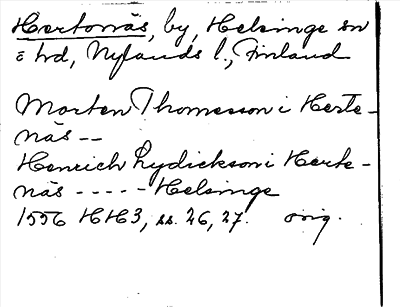 Hertonäs, by, Helsinge sn
o hd, Nylands l., Finland
Morten Thomesson i Herte-
näs --
Henrich Lydickson i Herte-
näs ----- Helsinge
1556 HH3, ss. 26, 27. orig.